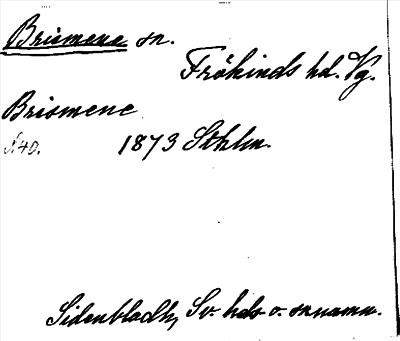 Brismene sn.
Frökinds hd. Vg.
Brismene
1873 Sthlm.
Sidenbladh, Sv. hds o. snnamn.